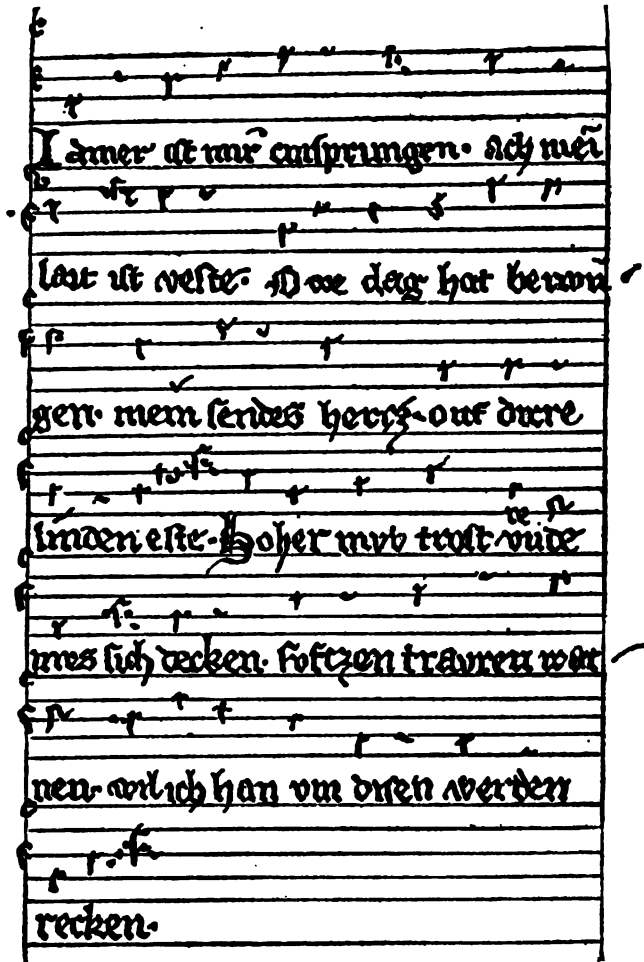 Iamer ist mir entsprungen. Ach mei
lait ist veste. Owe dag hat berwu
gen. mein sendes hertz. ouf durre
linden este. Hoher mvt trost vnde
mves sich decken. softzen trauren wei
nen. wil ich han vm disen werden
recken.